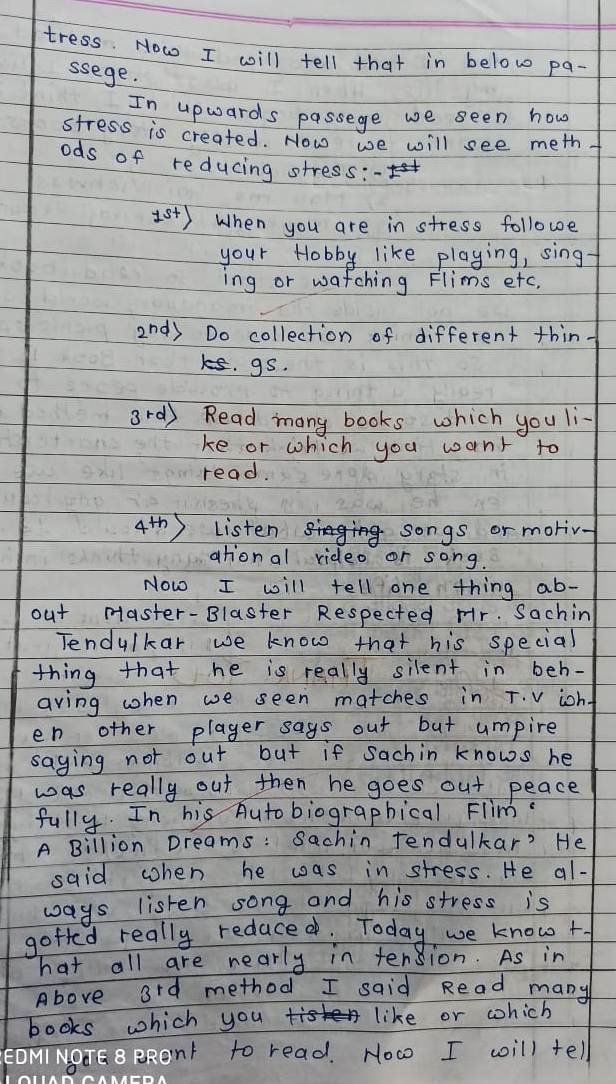 tress. Now I will tell that in below pa-
ssege.
In upwards passege we seen how
stress is created. Now we will see meth-
ods of reducing stress:- 1st
1st) When you are in stress followe
your Hobby like playing, sing-
ing or watching Flims etc.
2nd) Do collection of different thin-
ks. gs.
3rd) Read many books which you li-
ke or which you want to
read.
4th) Listen singing songs or motiv-
ational video or song.
Now I will tell one thing ab-
out Master-Blaster Respected Mr. Sachin
Tendulkar we know that his special
thing that he is really silent in beh-
aving when we seen matches in T.V wh-
en other player says out but umpire
saying not out but if Sachin knows he
was really out then he goes out peace
fully. In his Autobiographical Flim '
A Billion Dreams: Sachin Tendulkar' He
said when he was in stress. He al-
ways listen song and his stress is
gotted really reduced. Today we know t-
hat all are nearly in tension. As in
Above 3rd method I said Read many
books which you listen like or which
to read. Now I will tell
REDMI NOTE 8 PRO
QUAD CAMERA